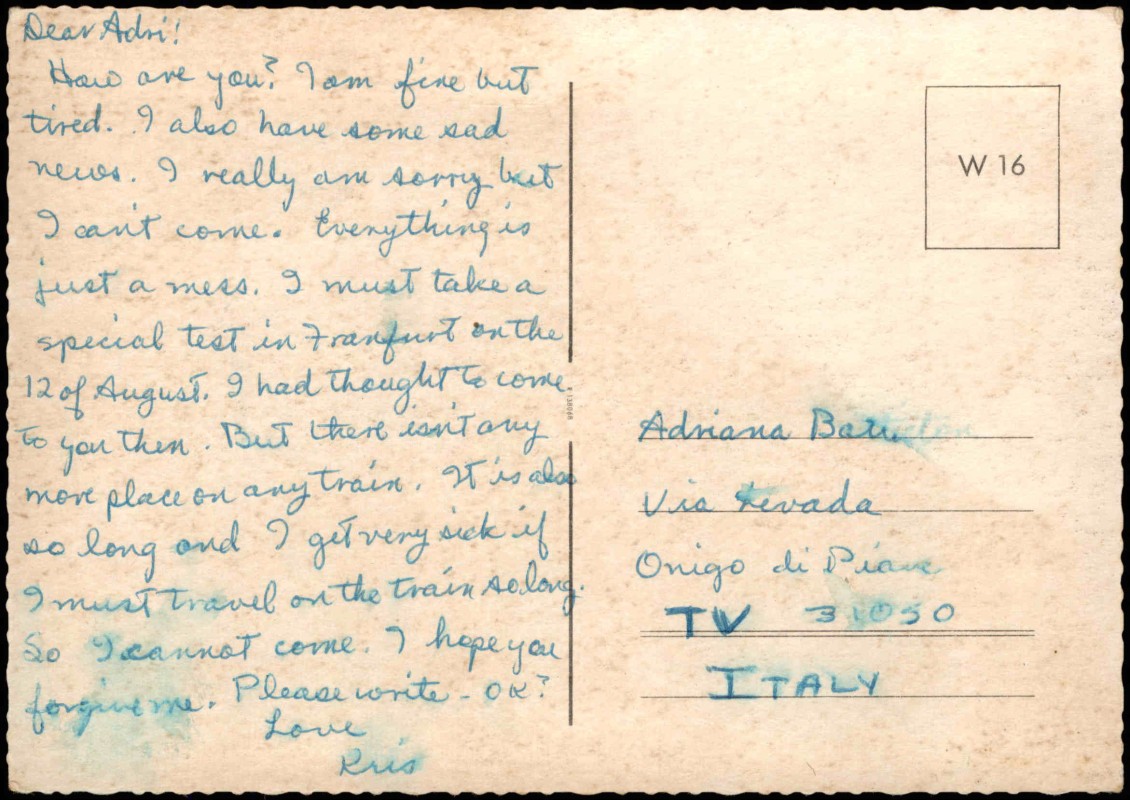 Dear Adri!
How are you? I am fine but
tired. I also have some sad
news. I really am sorry but
I can't come. Everything is
just a mess. I must take a
special test in Franfurt on the
12 of August. I had thought to come
to you then. But there isn't any
more place on any train. It is also
so long and I get very sick if
I must travel on the train so long.
So I cannot come. I hope you
forgive me. Please write - OK?
Love
Kris
W 16
Adriana
Via
Onigo di Piave
TV 31050
ITALY